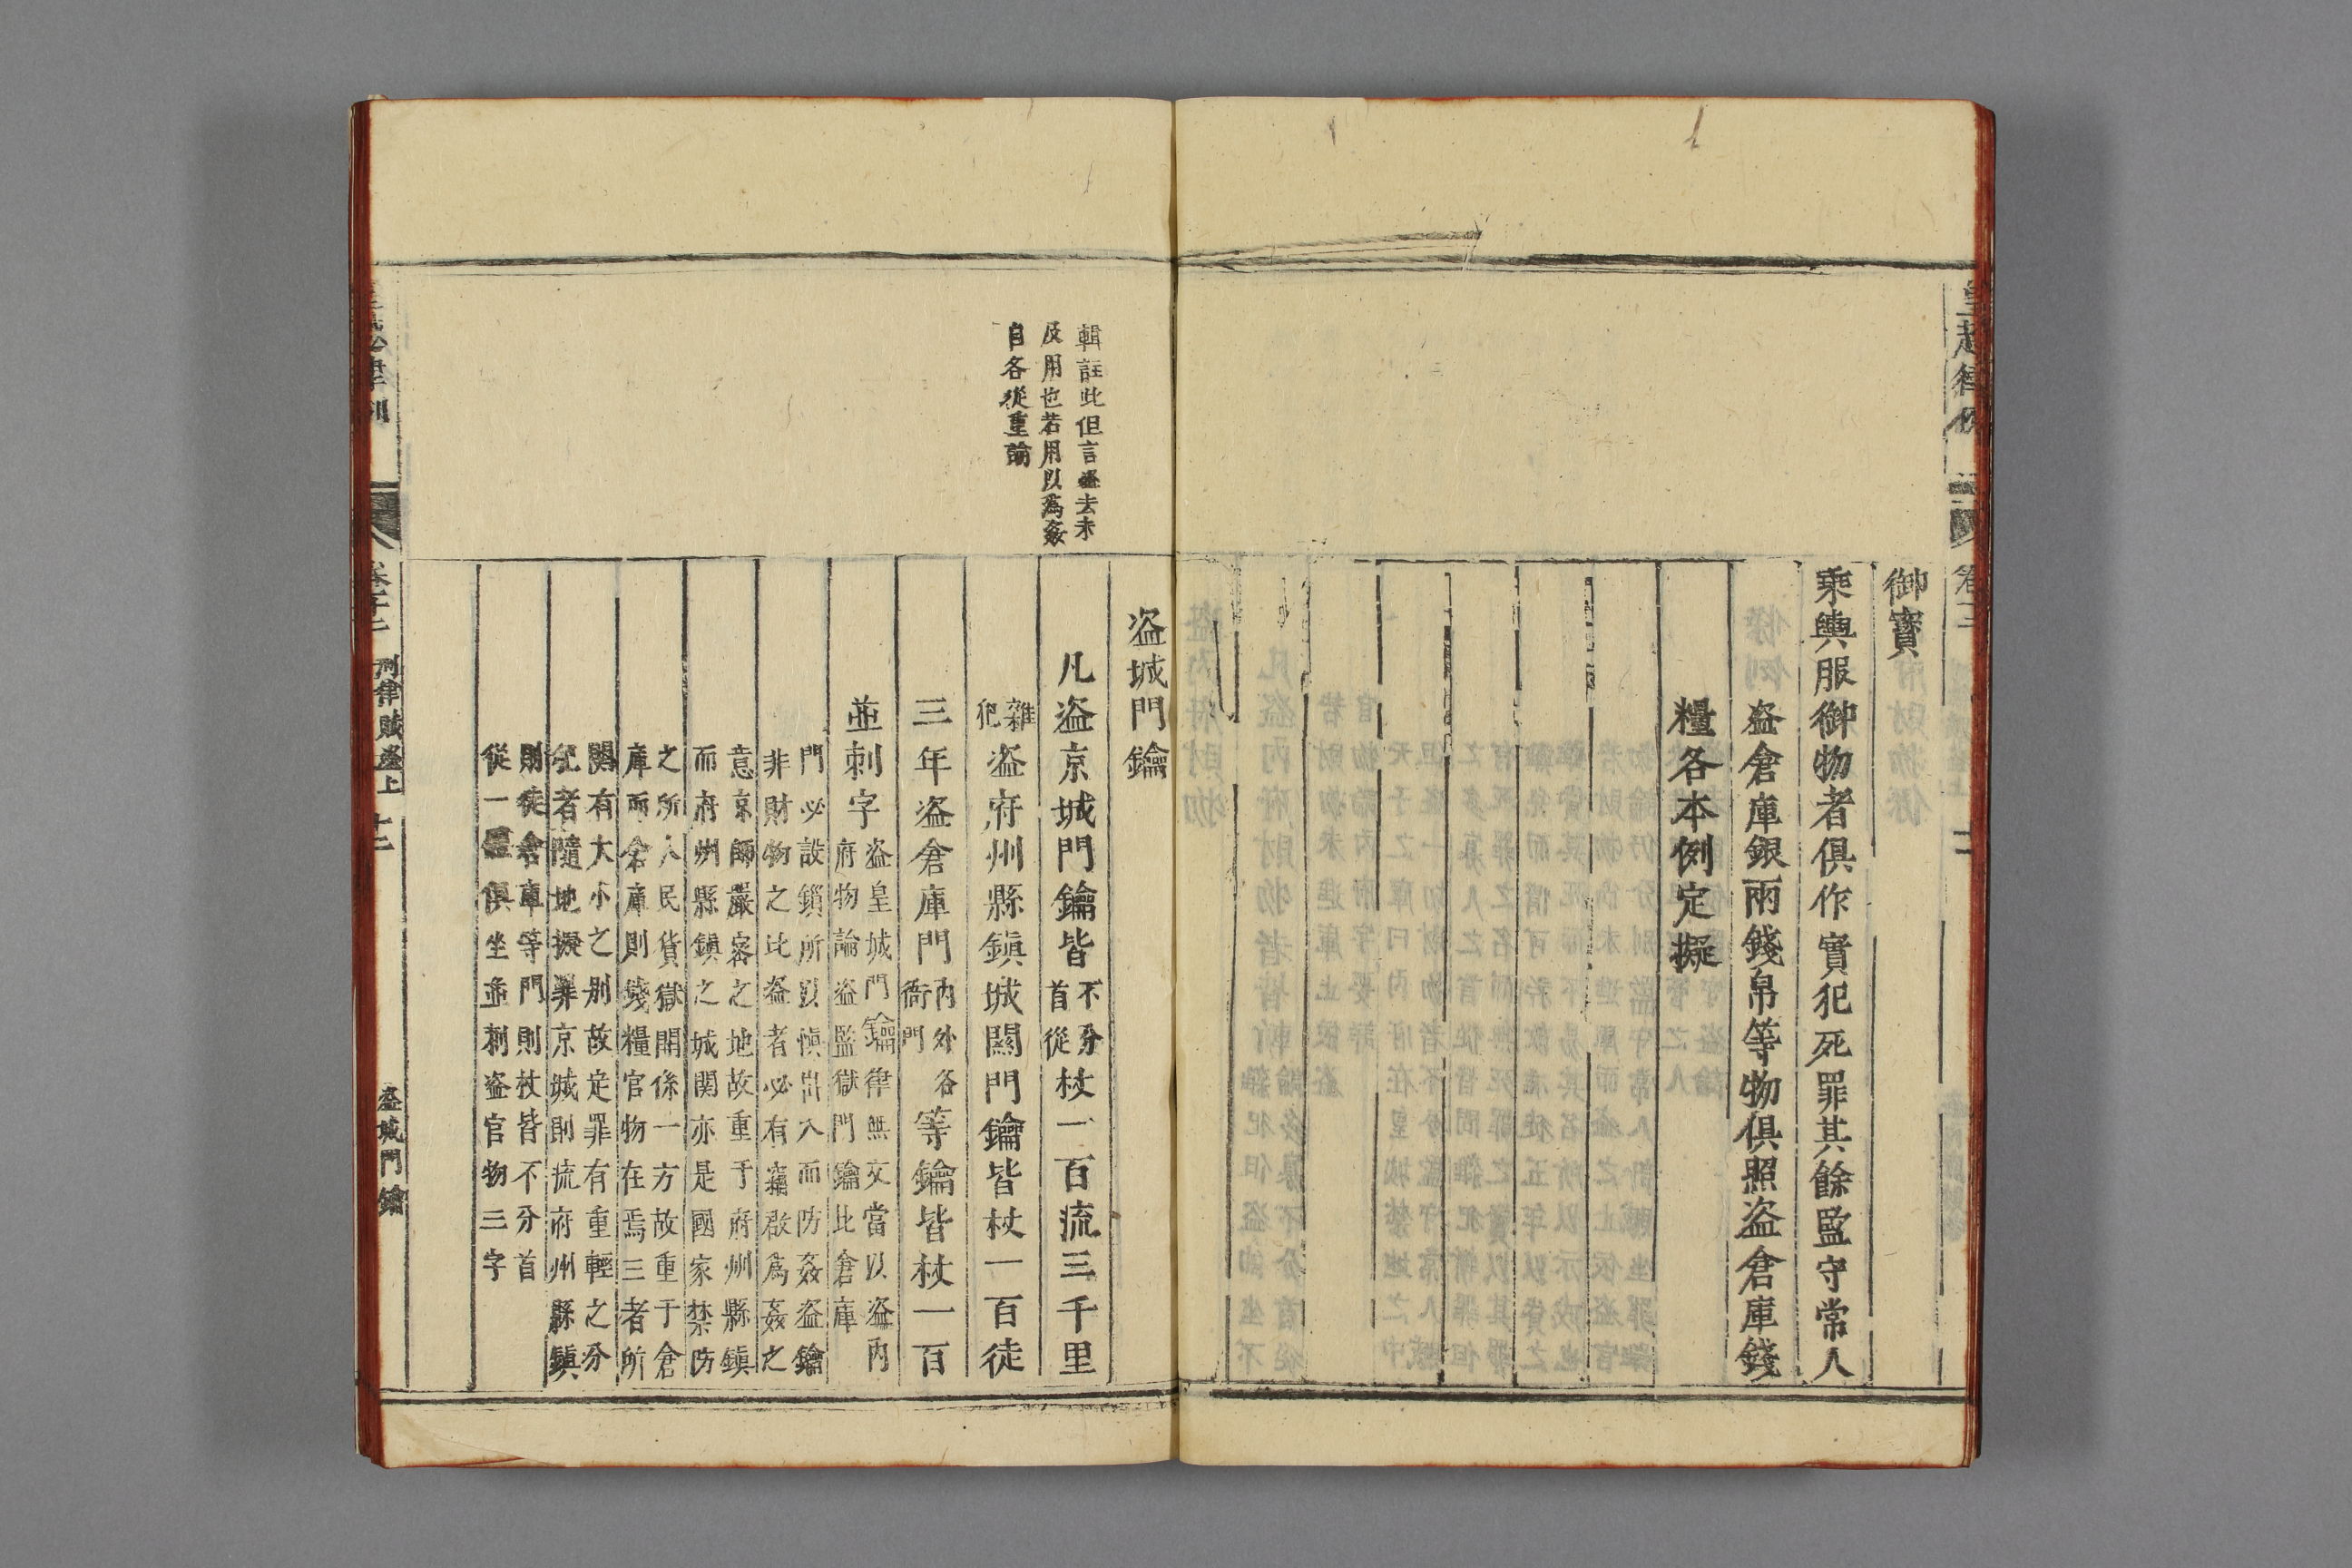 御寶
乘輿服御物者俱作實犯死罪其餘監守常人
盗倉庫銀兩錢帛等物俱照盗倉庫錢
糧各本例定擬
輯註此但言盗去未
及用也若用以爲姦
自各從重論
盗城門鑰
凡盗京城門鑰皆不分首從杖一百流三千里
雜犯盗府州縣鎮城關門鑰皆杖一百徒
三年盗倉庫門內外各衙門等鑰皆杖一百
並刺字盗皇城門鑰律無文當以盗內
府物論盗監獄門鑰比倉庫
門必設鎖所以愼出入而防姦盗鑰
非財物之比盗者必有竊啟爲姦之
意京師嚴密之地故重于府州縣鎮
而府州縣鎮之城関亦是國家禁防
之所人民貨獄関係一方故重于倉
庫而倉庫則錢糧官物在焉三者所
関有大小之别故定罪有重輕之分
犯者隨地擬罪京城則流府州縣鎮
則徒倉庫等門則杖皆不分首
從一體俱坐並刺盗官物三字
刑律賊盗上
十二
盗城門鑰